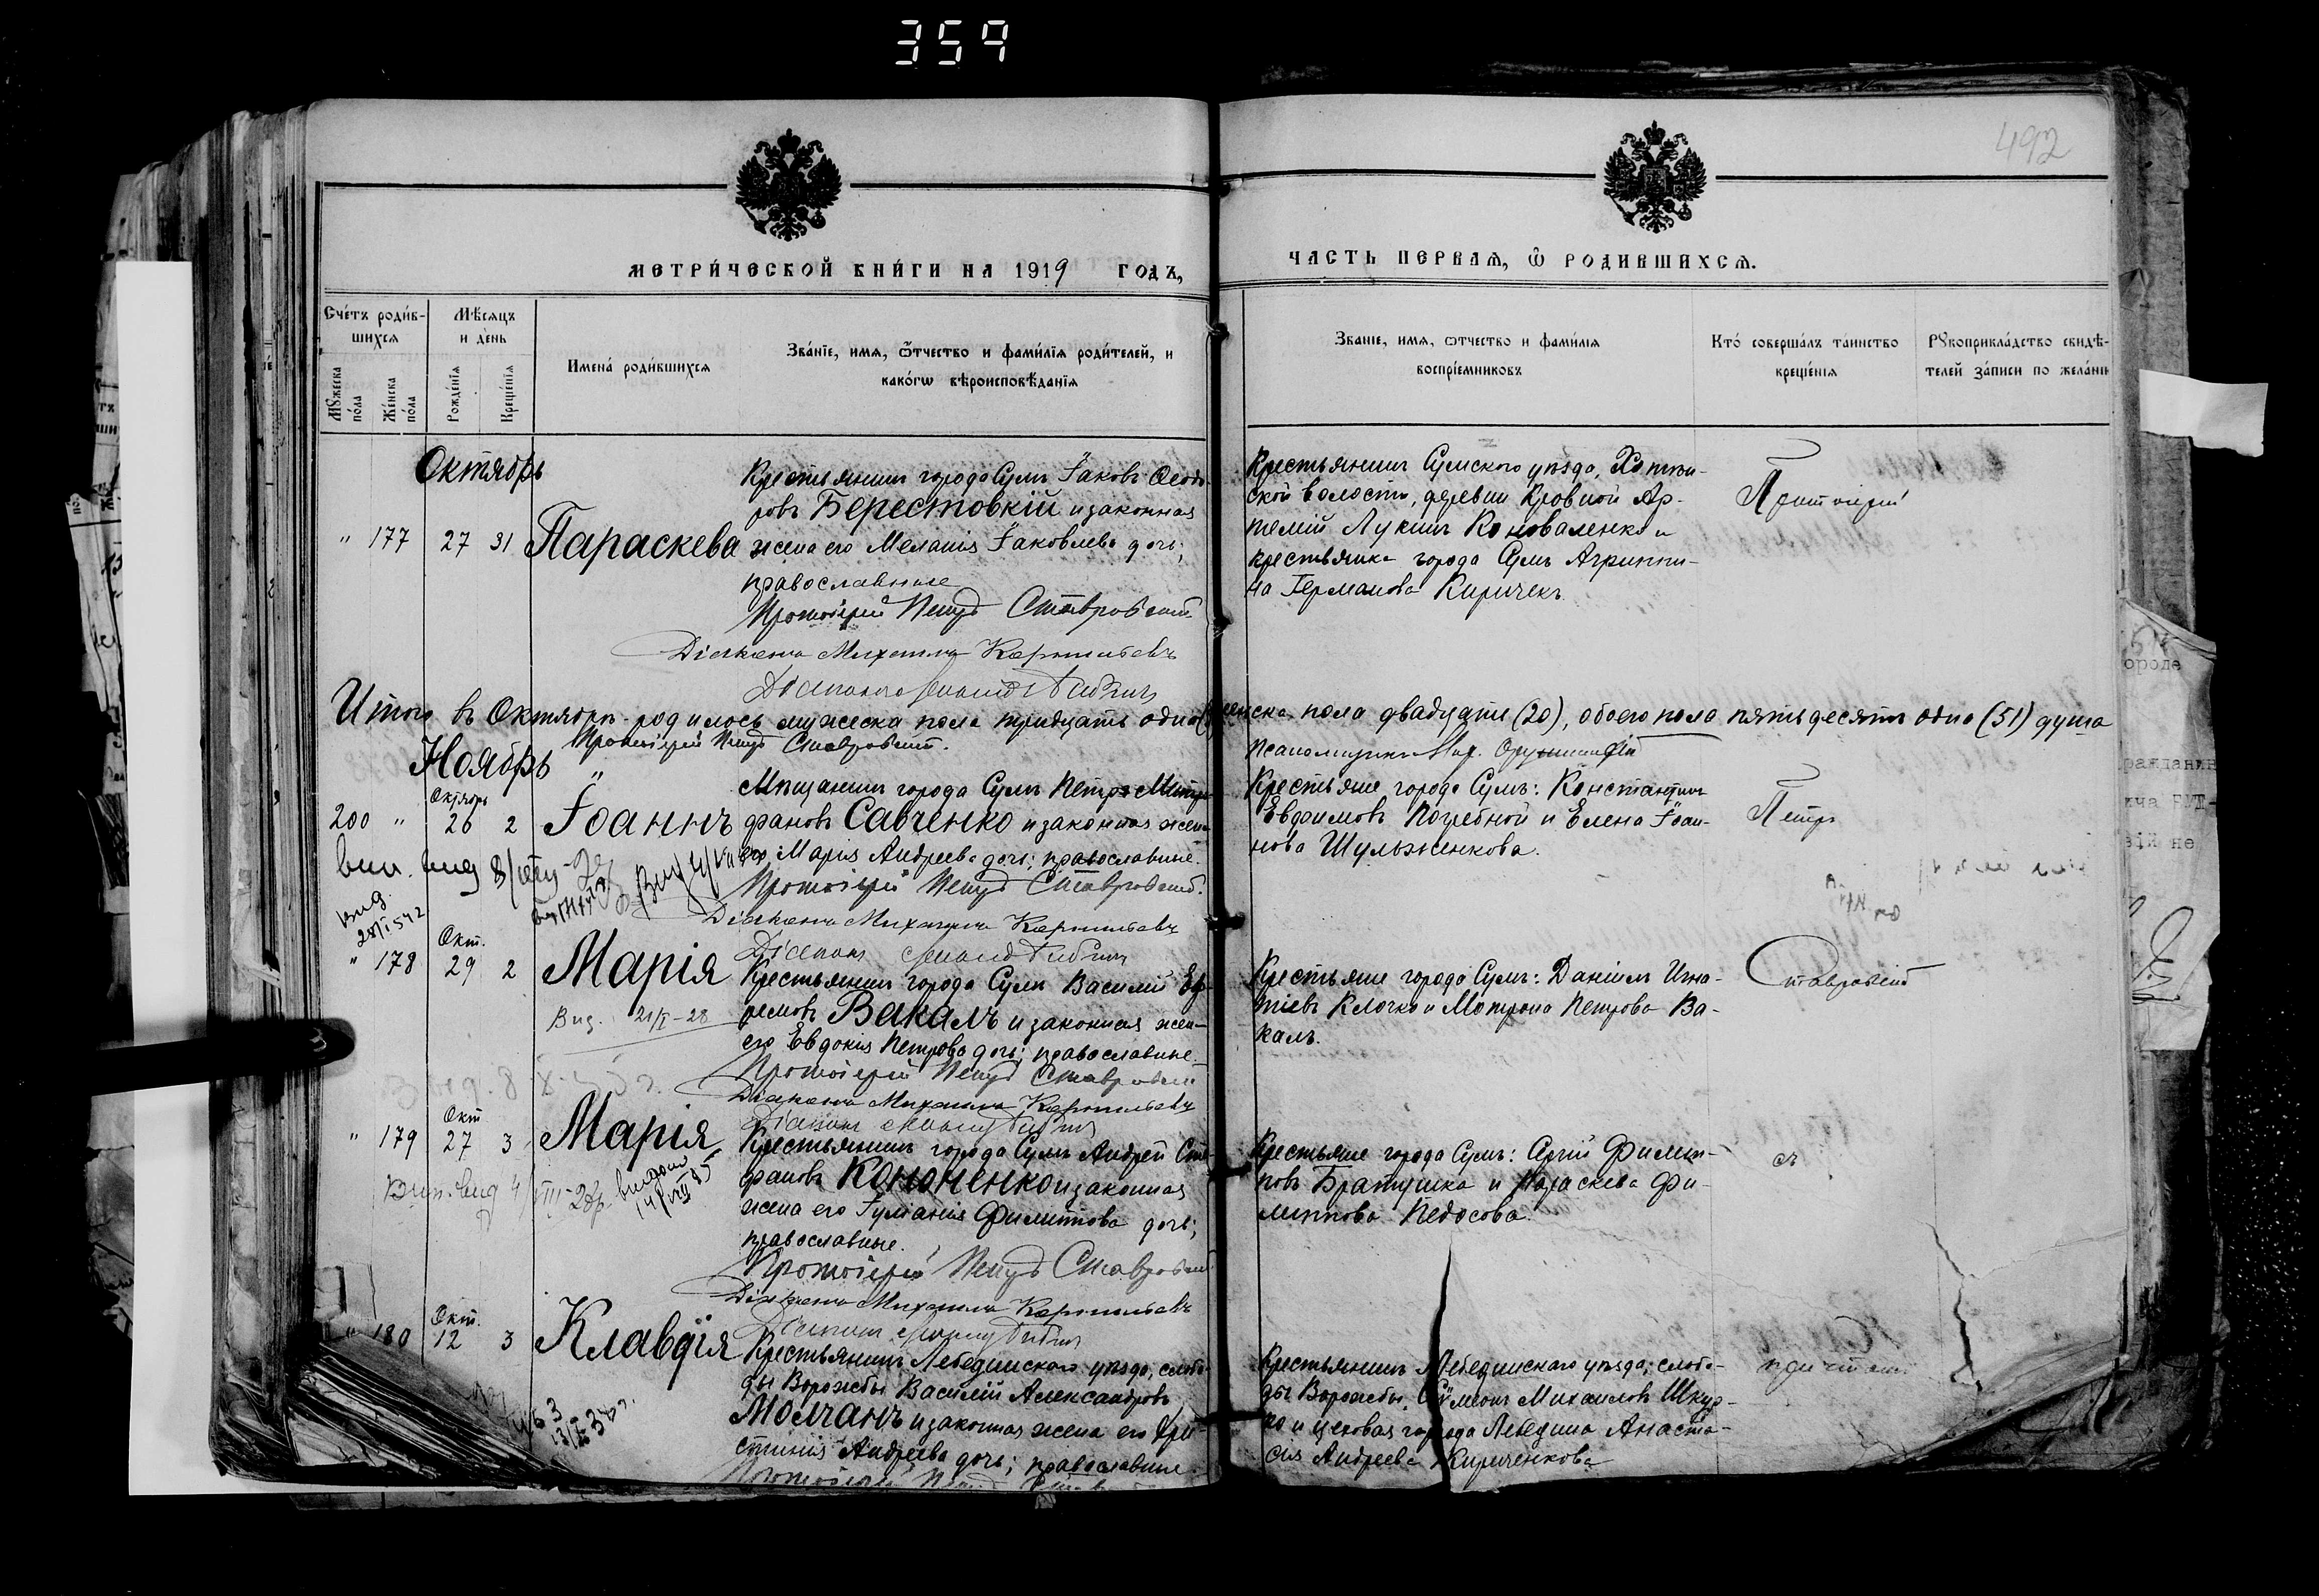 359
492
МЕТРИ́ЧЕСКОЙ КНИ́ГИ НА 1919 ГОДЪ,
ЧАСТЬ ПЕРВАѦ, Ѡ РОДИВШИХСѦ.
Сче́тъ роди́в-
шихсѧ
Мѣ́сѧцъ
и де́нь
Мꙋжеска
по́ла
Же́нска
по́ла
Рожде́нїѧ
Креще́нїѧ
Имена́ роди́вшихсѧ
Зва́нїе, имѧ, ѻ҆́тчество и фами́лїѧ роди́телей, и
како́гѡ вѣроисповѣ́данїѧ
Званіе, имѧ, ѻтчество и фами́лїѧ
воспрїемниковъ
Кто́ соверша́лъ та́инство
креще́нїѧ
Рꙋкоприкла́дство свидѣ-
телей за́писи по жела́нїю
Октябрь
" 177 27 31 Параскева
Крестьянинъ города Сумъ Іаковъ Ѳеодо-
ровъ Берестовкій и законная
жена его Меланія Іаковлева дочь;
православные
Протоіерей Петръ Ставровскій
Діаконъ Михаилъ
Діаконъ
Крестьянинъ Сумского уѣзда, Хотѣн-
ской волости, деревни Кровной Ар-
темій Лукинъ Коноваленко и
крестьянка города Сумъ Агриппи-
на Германова Киричекъ.
Протоіерей
Итого въ Октябрѣ родилось мужеска пола тридцать одно женска пола двадцать (20), обоего пола пятьдесятъ одно (51) душа
Протоіерей Петръ Ставровскій.
Псаломщикъ Мих.
Ноябрь
Октябрь
200 " 26 2 Іоаннъ
Мѣщанинъ города Сумъ Петръ Митро-
фановъ Савченко и законная жена
его Марія Андреева дочь; православные.
Протоіерей Петръ Ставровскій.
Діаконъ Михаилъ
Діаконъ
Крестьяне города Сумъ: Константинъ
Евфимовъ Погребной и Елена Іоан-
нова Шульженкова.
Петръ
Окт.
" 178 29 2 Марія
Вид. 21/I-28
Крестьянинъ города Сумъ Василій Еф-
ремовъ Вакалъ и законная жена
его Евдокія Петрова дочь; православные.
Протоіерей Петръ Ставровскій
Діаконъ Михаилъ
Діаконъ
Крестьяне города Сумъ: Даніилъ Игна-
тіевъ Клочко и Матрона Петрова Ва-
калъ.
Ставровскій
Окт
" 179 27 3 Марія
Крестьянинъ города Сумъ Андрей Сте-
фановъ Кононенко и законная
жена его Іуліанія Филиппова дочь;
православные.
Протоіерей Петръ Ставровскій
Діаконъ Михаилъ
Діаконъ
Крестьяне города Сумъ: Сергій Филип-
повъ Братушка и Параскева Фи-
липпова Педосова.
съ
Окт.
" 180 12 3 Клавдія
Крестьянинъ Лебединскаго уѣзда, слобо-
ды Ворожбы Василій Александровъ
Молчанъ и законная жена его Хри-
стинія Андреева дочь; православные.
Протоіерей Петръ
Крестьянинъ Лебединскаго уѣзда, слобо-
ды Ворожбы, Сѵмеонъ Михаиловъ Шкур-
ко и цеховая города Лебедина Анаста-
сія Андреева Кириченкова
причтомъ